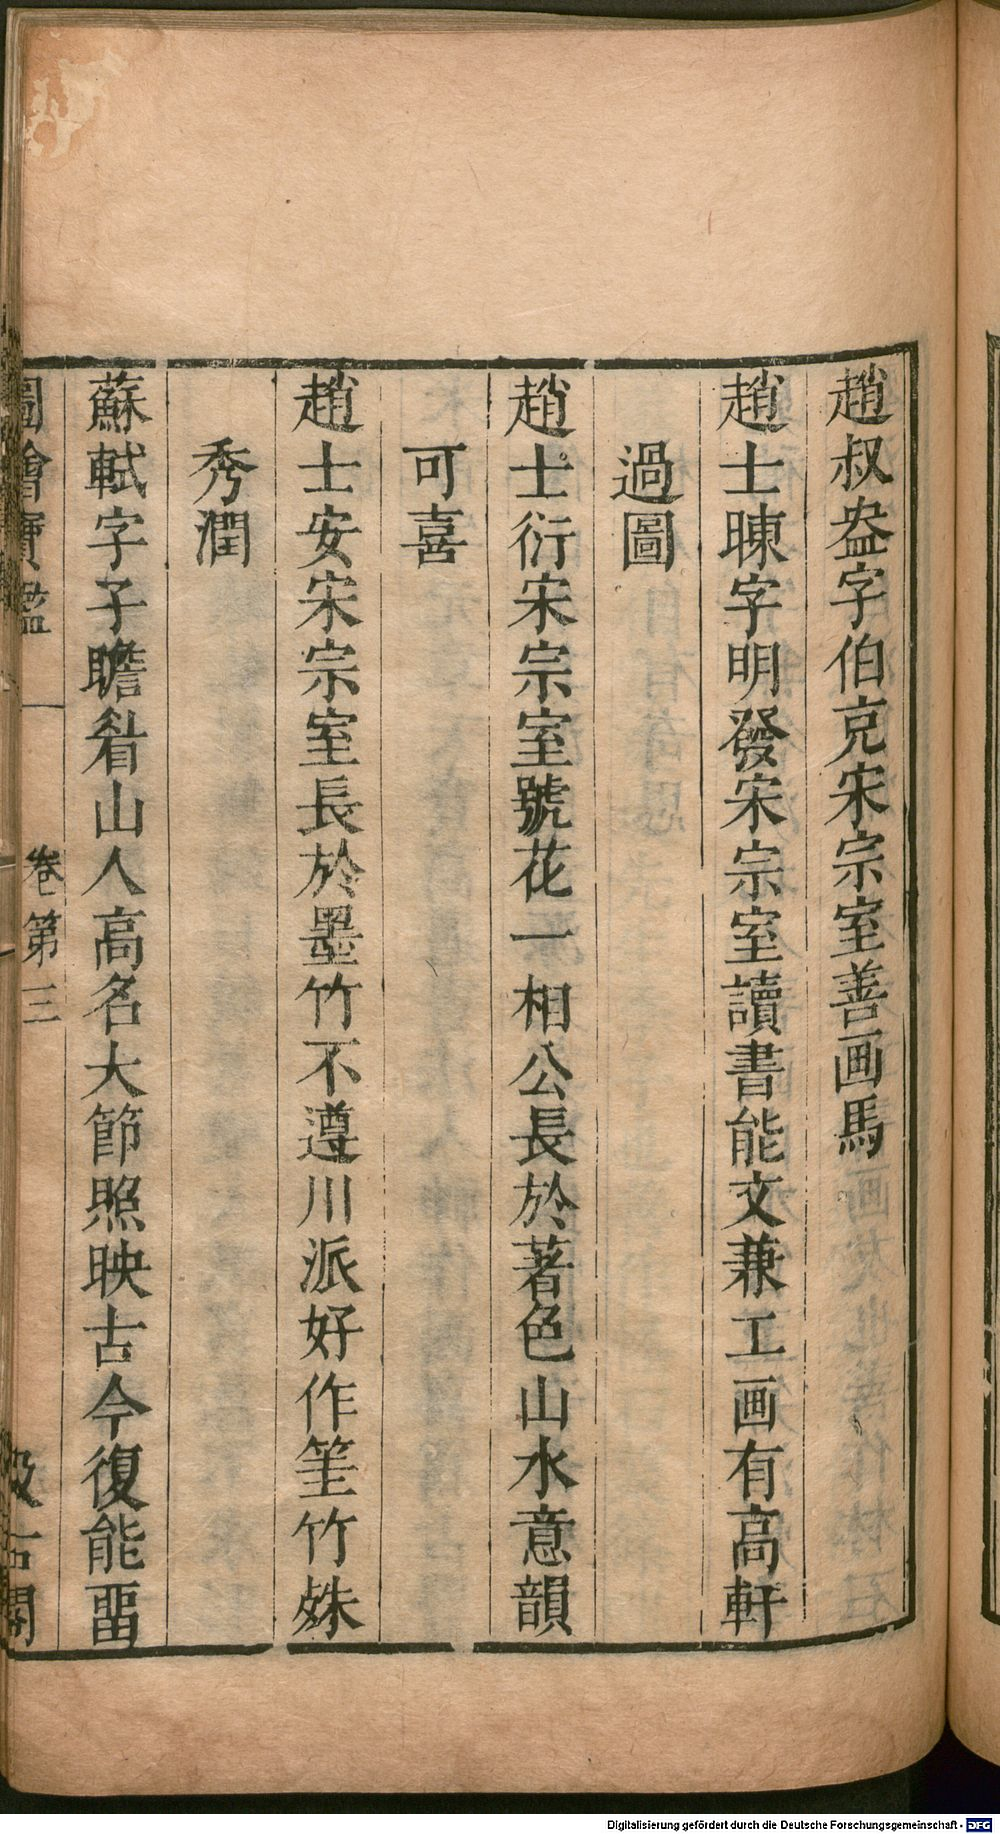 趙叔盎字伯克宋宗室善画馬
趙士暕字明發宋宗室讀書能文兼工画有高軒
過圖
趙士衍宋宗室號花一相公長於著色山水意韻
可喜
趙士安宋宗室長於墨竹不遵川派好作筀竹姝
秀潤
蘇軾字子瞻眉山人高名大節照映古今復能畱
圖繪寶鑑 卷第三 汲古閣
Digitalisierung gefördert durch die Deutsche Forschungsgemeinschaft - DFG